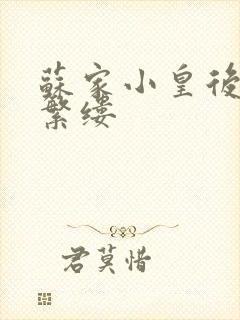 蘇家小皇後
繁缕
君莫惜